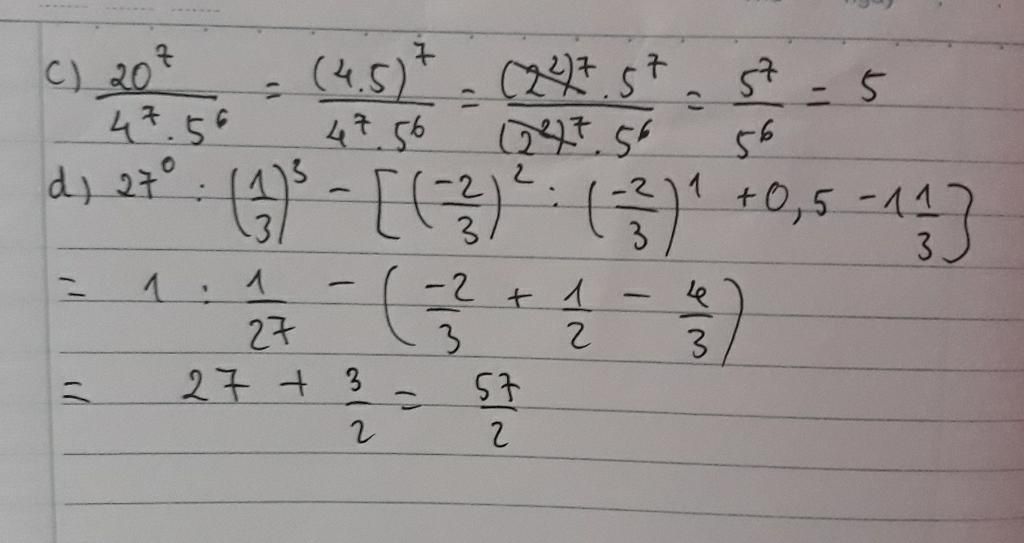 c) 20⁷ / (4⁷ . 5⁶) = (4.5)⁷ / (4⁷ . 5⁶) = ((2²)⁷ . 5⁷) / ((2²)⁷ . 5⁶) = 5⁷ / 5⁶ = 5
d) 27⁰ : (1/3)³ - [(-2/3)² : (-2/3)¹ + 0,5 - 1 1/3]
= 1 : 1/27 - (-2/3 + 1/2 - 4/3)
= 27 + 3/2 = 57/2